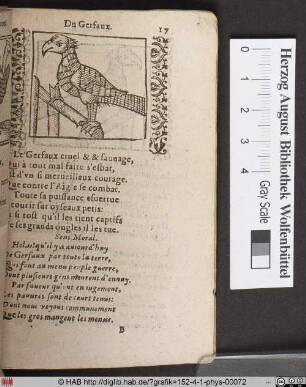 Du Gerfaux. 17
Le Gerfaux cruel & & sauuage,
Qui à tout mal faire s'esbat,
Est d'vn si merueilleux courage,
Que contre l'Aigle se combat.
Toute sa puissance esuertue
A courir sur oyseaux petis:
Et si tost qu'il les tient captifs
De ses grands ongles il les tue.
Sens Moral.
Helas! qu'il y a auiourd'huy
De Gerfaux par toute la terre,
Qui font au menu peuple guerre,
Dont plusieurs gens meurent d'ennuy.
Par faueur qu'ont en iugement,
Les pauures sont de court tenus:
Dont nous voyons communement
Que les gros mangent les menus.
B
0 1 2 3 4
Herzog August Bibliothek Wolfenbüttel
Gray Scale
© HAB http://diglib.hab.de/?grafik=152-4-1-phys-00072